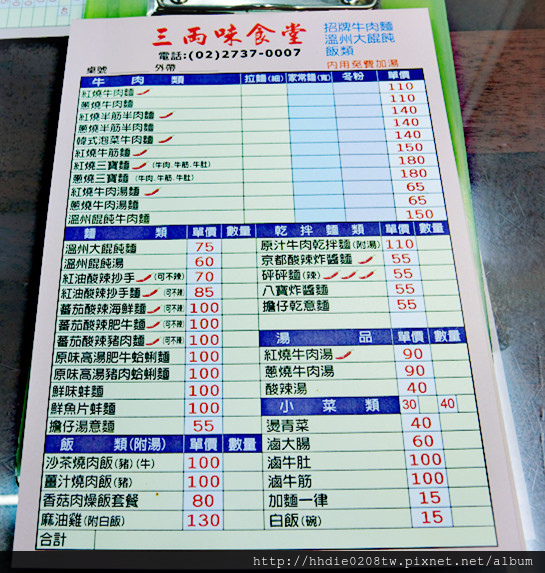 三両味食堂
電話:(02)2737-0007
招牌牛肉麵
溫州大餛飩
飯類
內用免費加湯
桌號 外帶
牛肉類 拉麵(細) 家常麵(寬) 冬粉 單價
紅燒牛肉麵 110
蔥燒牛肉麵 110
紅燒半筋半肉麵 140
蔥燒半筋半肉麵 140
韓式泡菜牛肉麵 140
紅燒牛筋麵 150
紅燒三寶麵 (牛肉.牛筋.牛肚) 180
蔥燒三寶麵 (牛肉.牛筋.牛肚) 180
紅燒牛肉湯麵 65
蔥燒牛肉湯麵 65
溫州餛飩牛肉麵 150
麵類 單價 數量
溫州大餛飩麵 75
溫州餛飩湯 60
紅油酸辣抄手 (可不辣) 70
紅油酸辣抄手麵 (可不辣) 85
蕃茄酸辣海鮮麵 (可不辣) 100
蕃茄酸辣肥牛麵 (可不辣) 100
蕃茄酸辣豬肉麵 (可不辣) 100
原味高湯肥牛蛤蜊麵 100
原味高湯豬肉蛤蜊麵 100
鮮味蚌麵 100
鮮魚片蚌麵 100
擔仔湯意麵 55
飯類(附湯) 單價 數量
沙茶燒肉飯(豬)(牛) 100
薑汁燒肉飯(豬) 100
香菇肉燥飯套餐 80
麻油雞(附白飯) 130
合計
乾拌麵類 單價 數量
原汁牛肉乾拌麵(附湯) 110
京都酸辣炸醬麵 55
砰砰麵(辣) 55
八寶炸醬麵 55
擔仔乾意麵 55
湯品 單價 數量
紅燒牛肉湯 90
蔥燒牛肉湯 90
酸辣湯 40
小菜類 30 40
燙青菜 40
滷大腸 60
滷牛肚 100
滷牛筋 100
加麵一律 15
白飯(碗) 15
http://hhdie0208tw.pixnet.net/album